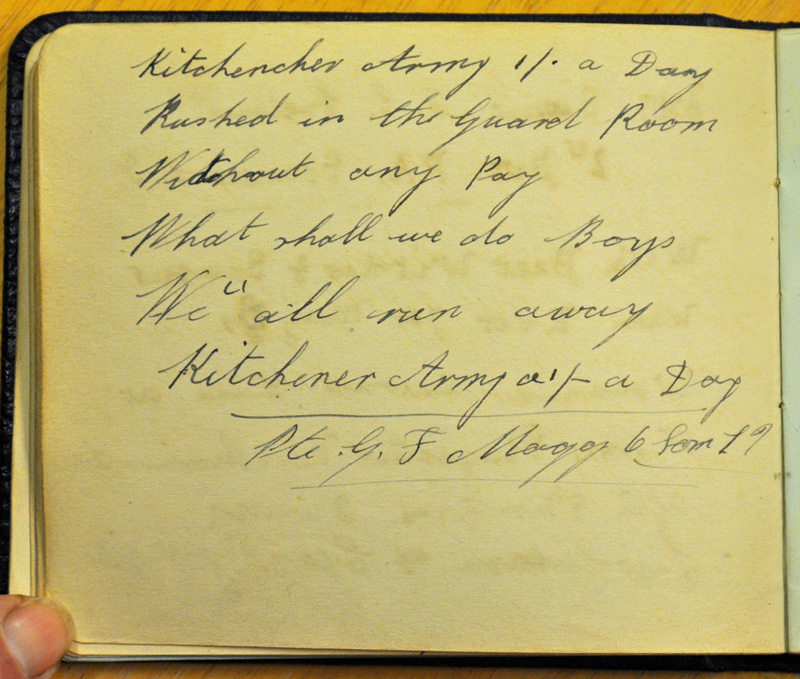 Kitchencher Army 1/. a Day
Rushed in the Guard Room
Without any Pay
What shall we do Boys
We" all run away
Kitchener Army a 1/- a Day
Pte. G. F Magg 6 Som L